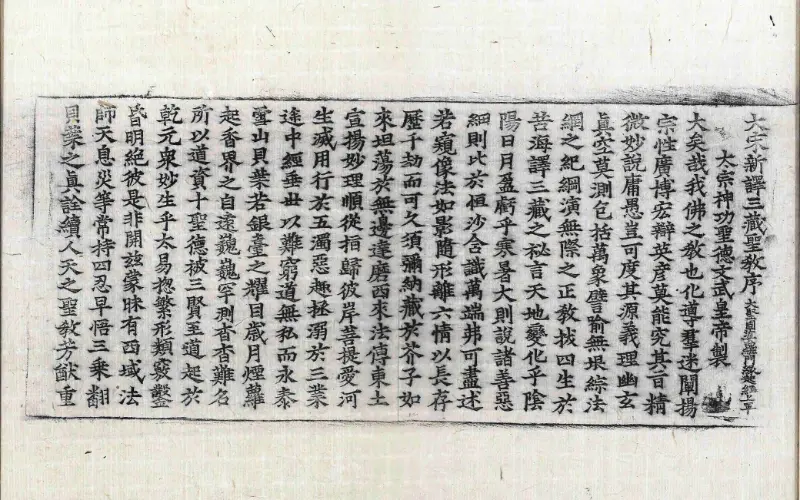 大宋新譯三藏聖教序
太宗神功聖德文武皇帝製
大矣哉我佛之教也化導羣迷闡揚
宗性廣博宏辯英彥莫能究其旨精
微妙說庸愚豈可度其源義理幽玄
眞空莫測包括萬象譬喻無垠綜法
網之紀綱演無際之正教拔四生於
苦海譯三藏之祕言天地變化乎陰
陽日月盈虧乎寒暑大則說諸善惡
細則比於恒沙含識萬端弗可盡述
若窺像法如影隨形離六情以長存
歷千劫而可久須彌納藏於芥子如
來坦蕩於無邊達磨西來法傳東土
宣揚妙理順從指歸彼岸菩提愛河
生滅用行於五濁惡趣拯溺於三業
途中經垂世以難窮道無私而永泰
雪山貝葉若銀臺之耀目歲月煙蘿
起香界之自遠巍巍罕測杳杳難名
所以道資十聖德被三賢至道起於
乾元衆妙生乎太易揔繁形類竅鑿
昏明絕彼是非開茲蒙昧有西域法
師天息災等常持四忍早悟三乘翻
貝葉之眞詮續人天之聖教芳猷重